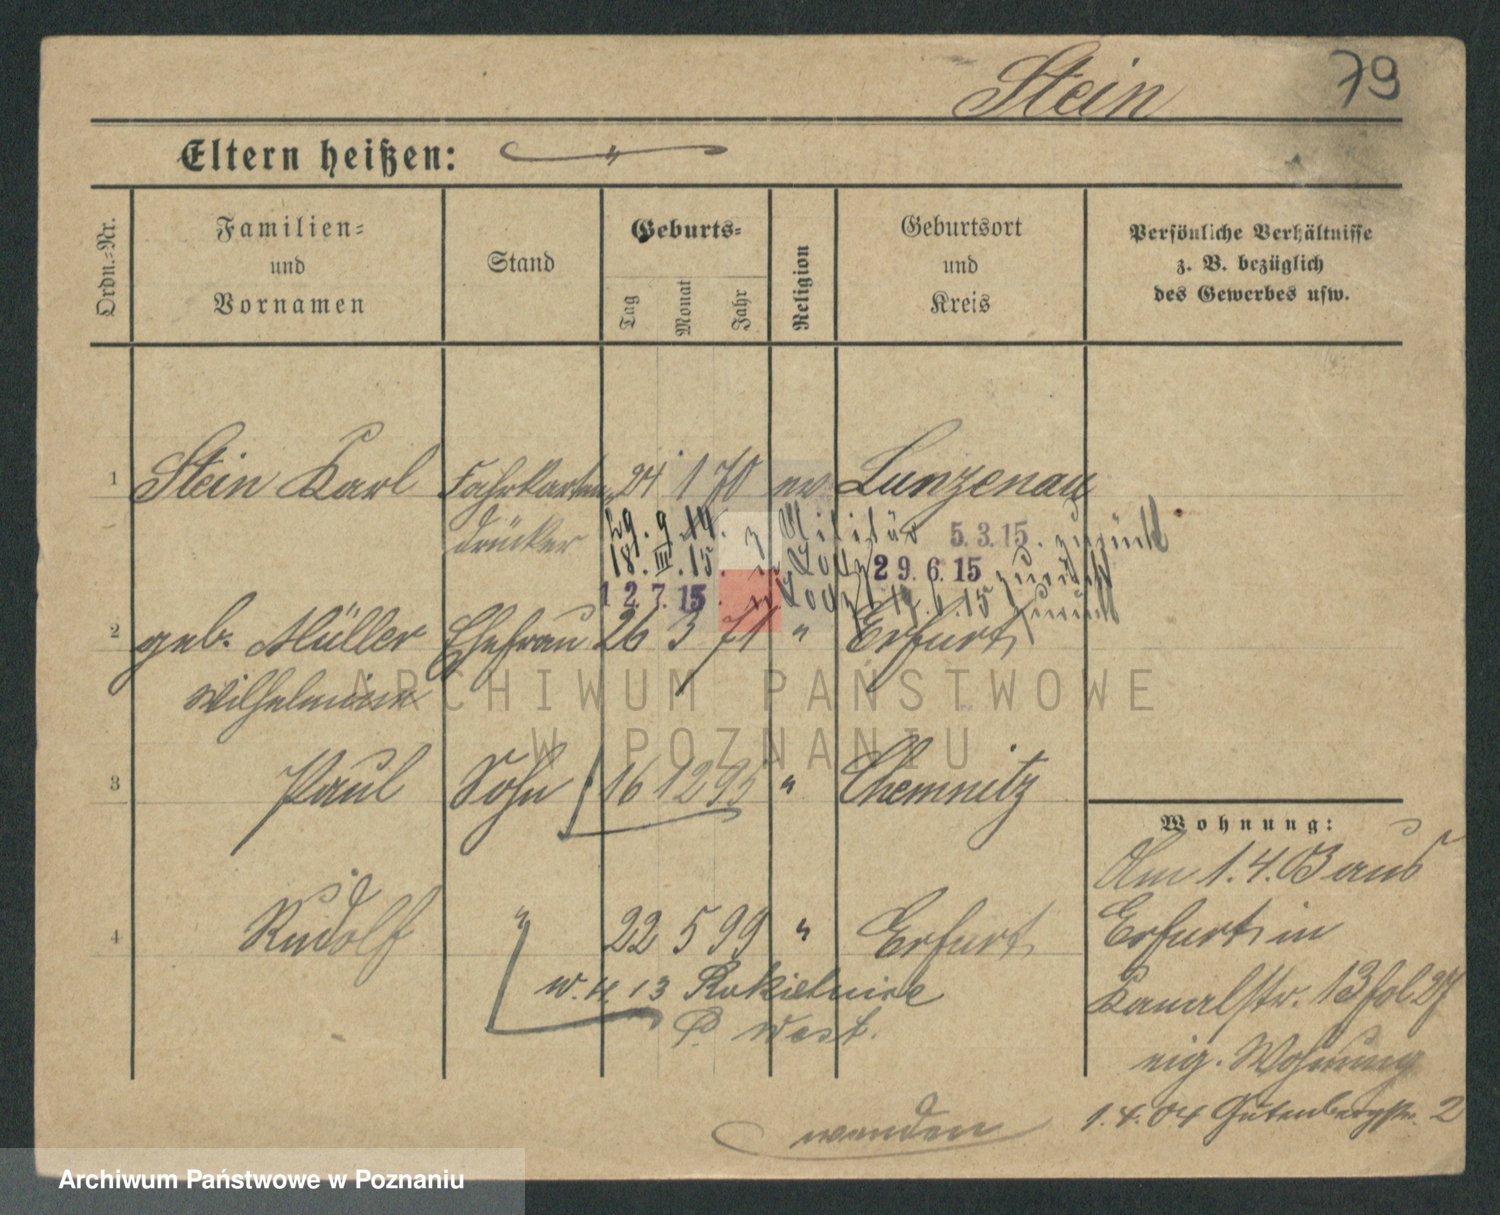 Stein 79
Eltern heißen: "
Ordn.-Nr.
Familien-
und
Vornamen
Stand
Geburts-
Tag Monat Jahr
Religion
Geburtsort
und
Kreis
Persönliche Verhältnisse
z. B. bezüglich
des Gewerbes usw.
1 Stein Karl Fahrkarten- 24 1 70 ev Lunzenau
drucker 29.9.14. z Militär 5.3.15. zurück
18.III.15. n Lodz 29.6.15 zurück
12.7.15. n Lodz 14.6.15 zurück
2 geb. Müller Ehefrau 26 3 71 " Erfurt
Wilhelmine
ARCHIWUM PAŃSTWOWE
W POZNANIU
3 Paul Sohn 16 12 95 " Chemnitz
Wohnung:
Am 1.4.03 aus
4 Rudolf " 22 5 99 " Erfurt
Erfurt in
w. 4. 13 Rokietnice
Kanalstr. 13 fol. 27
P. West.
eig. Wohnung
1.4.04 Gutenbergstr. 2
wenden
Archiwum Państwowe w Poznaniu